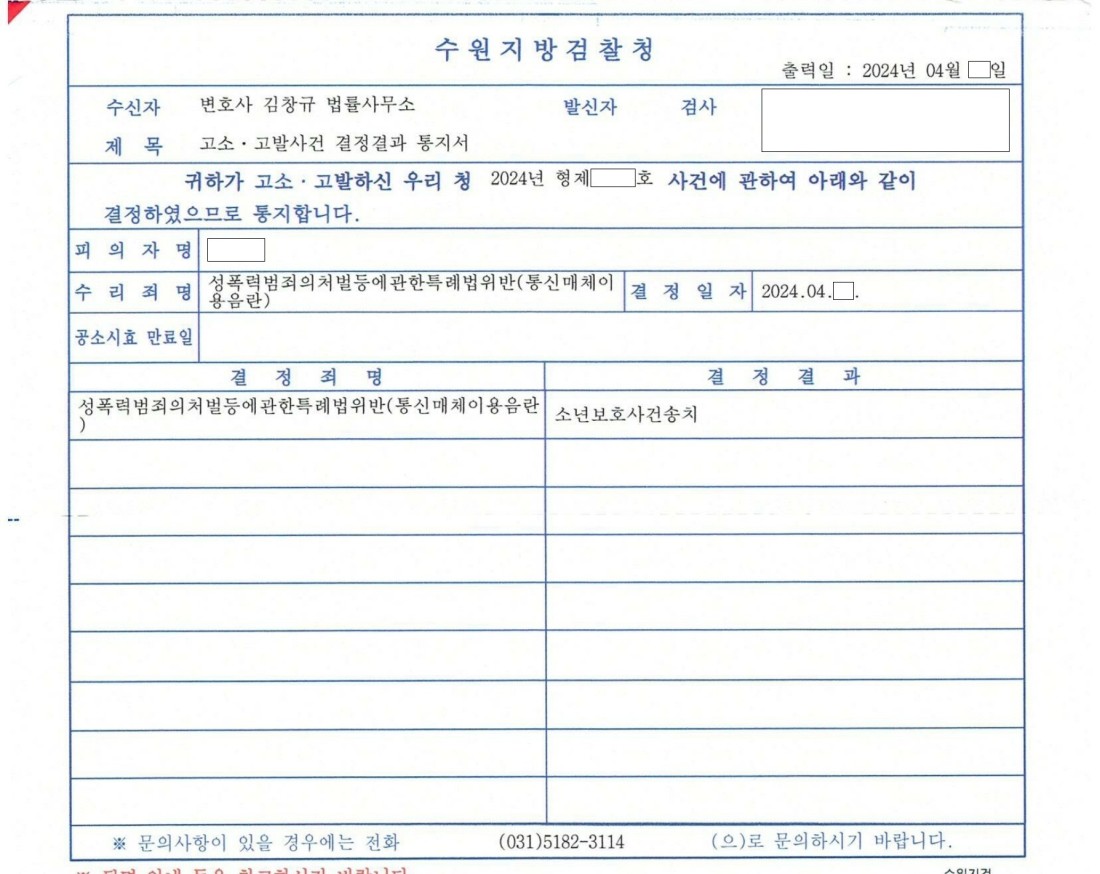 수원지방검찰청
출력일 : 2024년 04월 일
수신자 변호사 김창규 법률사무소 발신자 검사
제 목 고소·고발사건 결정결과 통지서
귀하가 고소·고발하신 우리 청 2024년 형제 호 사건에 관하여 아래와 같이
결정하였으므로 통지합니다.
피 의 자 명
수 리 죄 명 성폭력범죄의처벌등에관한특례법위반(통신매체이
용음란) 결 정 일 자 2024.04. .
공소시효 만료일
결 정 죄 명 결 정 결 과
성폭력범죄의처벌등에관한특례법위반(통신매체이용음란
) 소년보호사건송치
※ 문의사항이 있을 경우에는 전화 (031)5182-3114 (으)로 문의하시기 바랍니다.